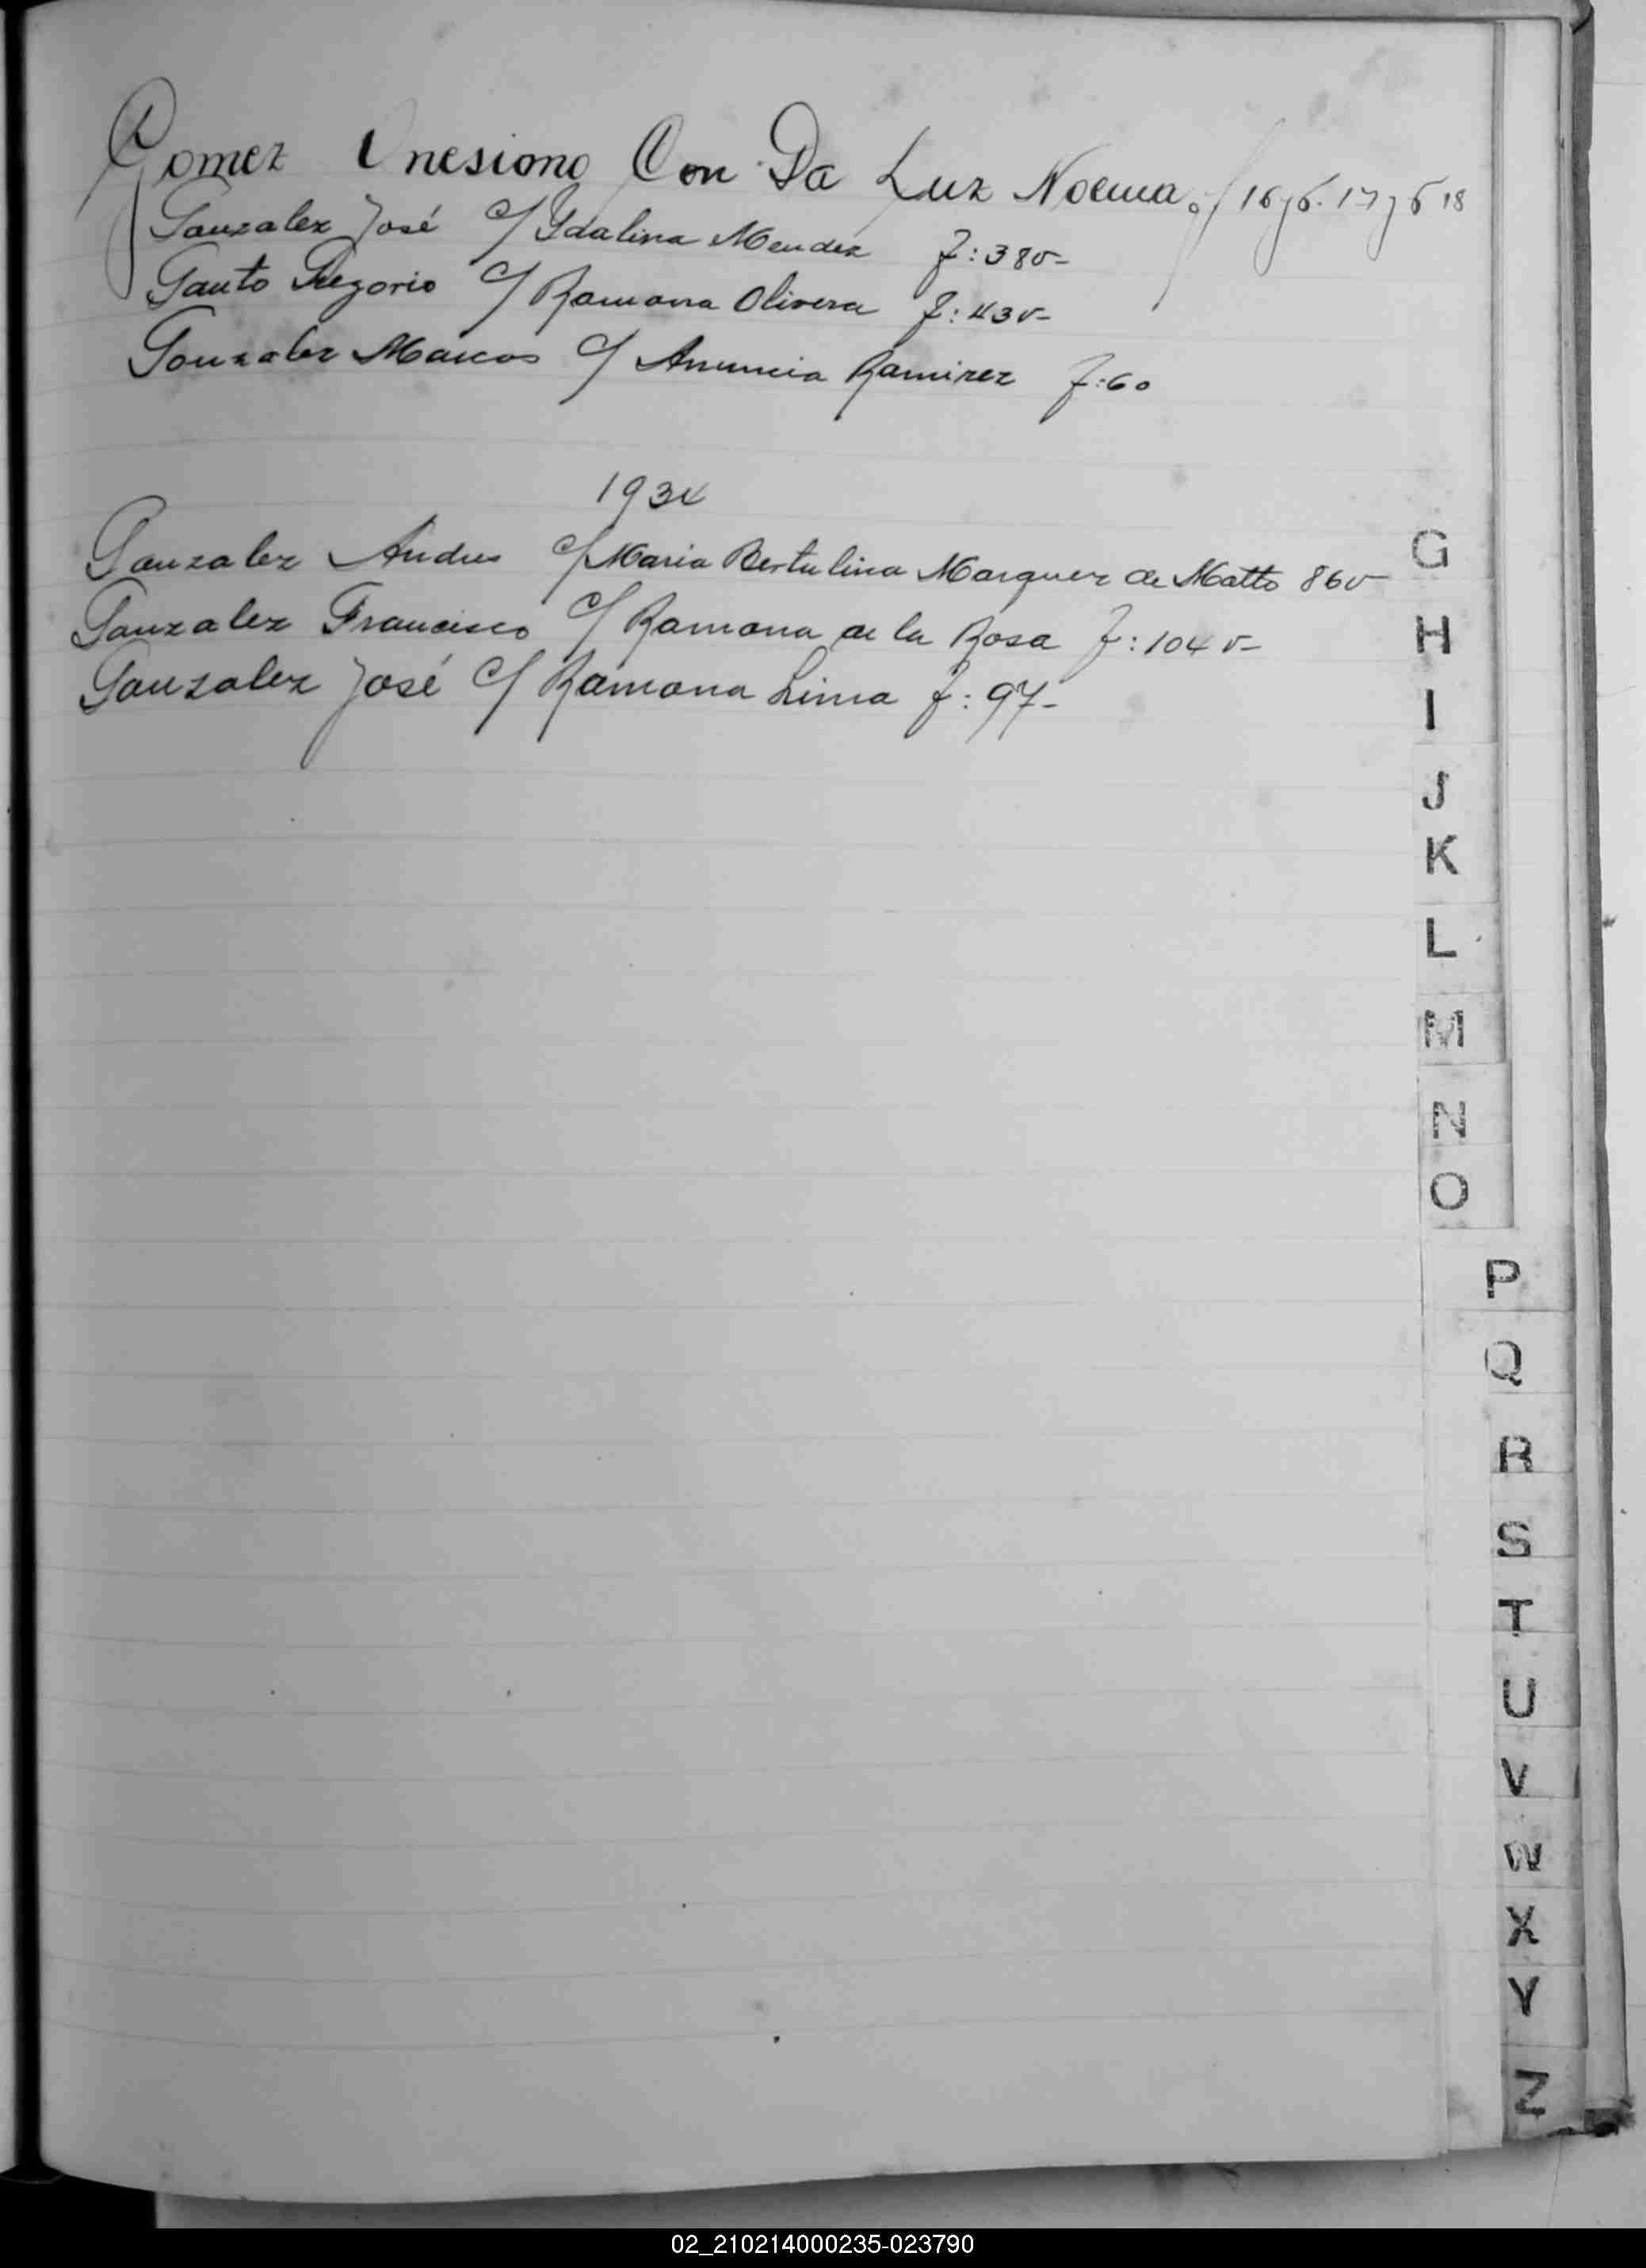 Gomez Onesiono Con Da Luz Noema
Gonzalez José c/ Ydalina Mendez F: 38v-
Gauto Gregorio c/ Ramona Olivera F: 43v-
Gonzalez Marcos c/ Anuncia Ramirez F: 60
1934
Gonzalez Andres c/ Maria Bertulina Marquez de Matto 86v-
Gonzalez Francisco c/ Ramona de la Rosa F: 104v-
Gonzalez José c/ Ramona Lima F: 97-
G
H
I
J
K
L
M
N
O
P
Q
R
S
T
U
V
W
X
Y
Z
02_210214000235-023790